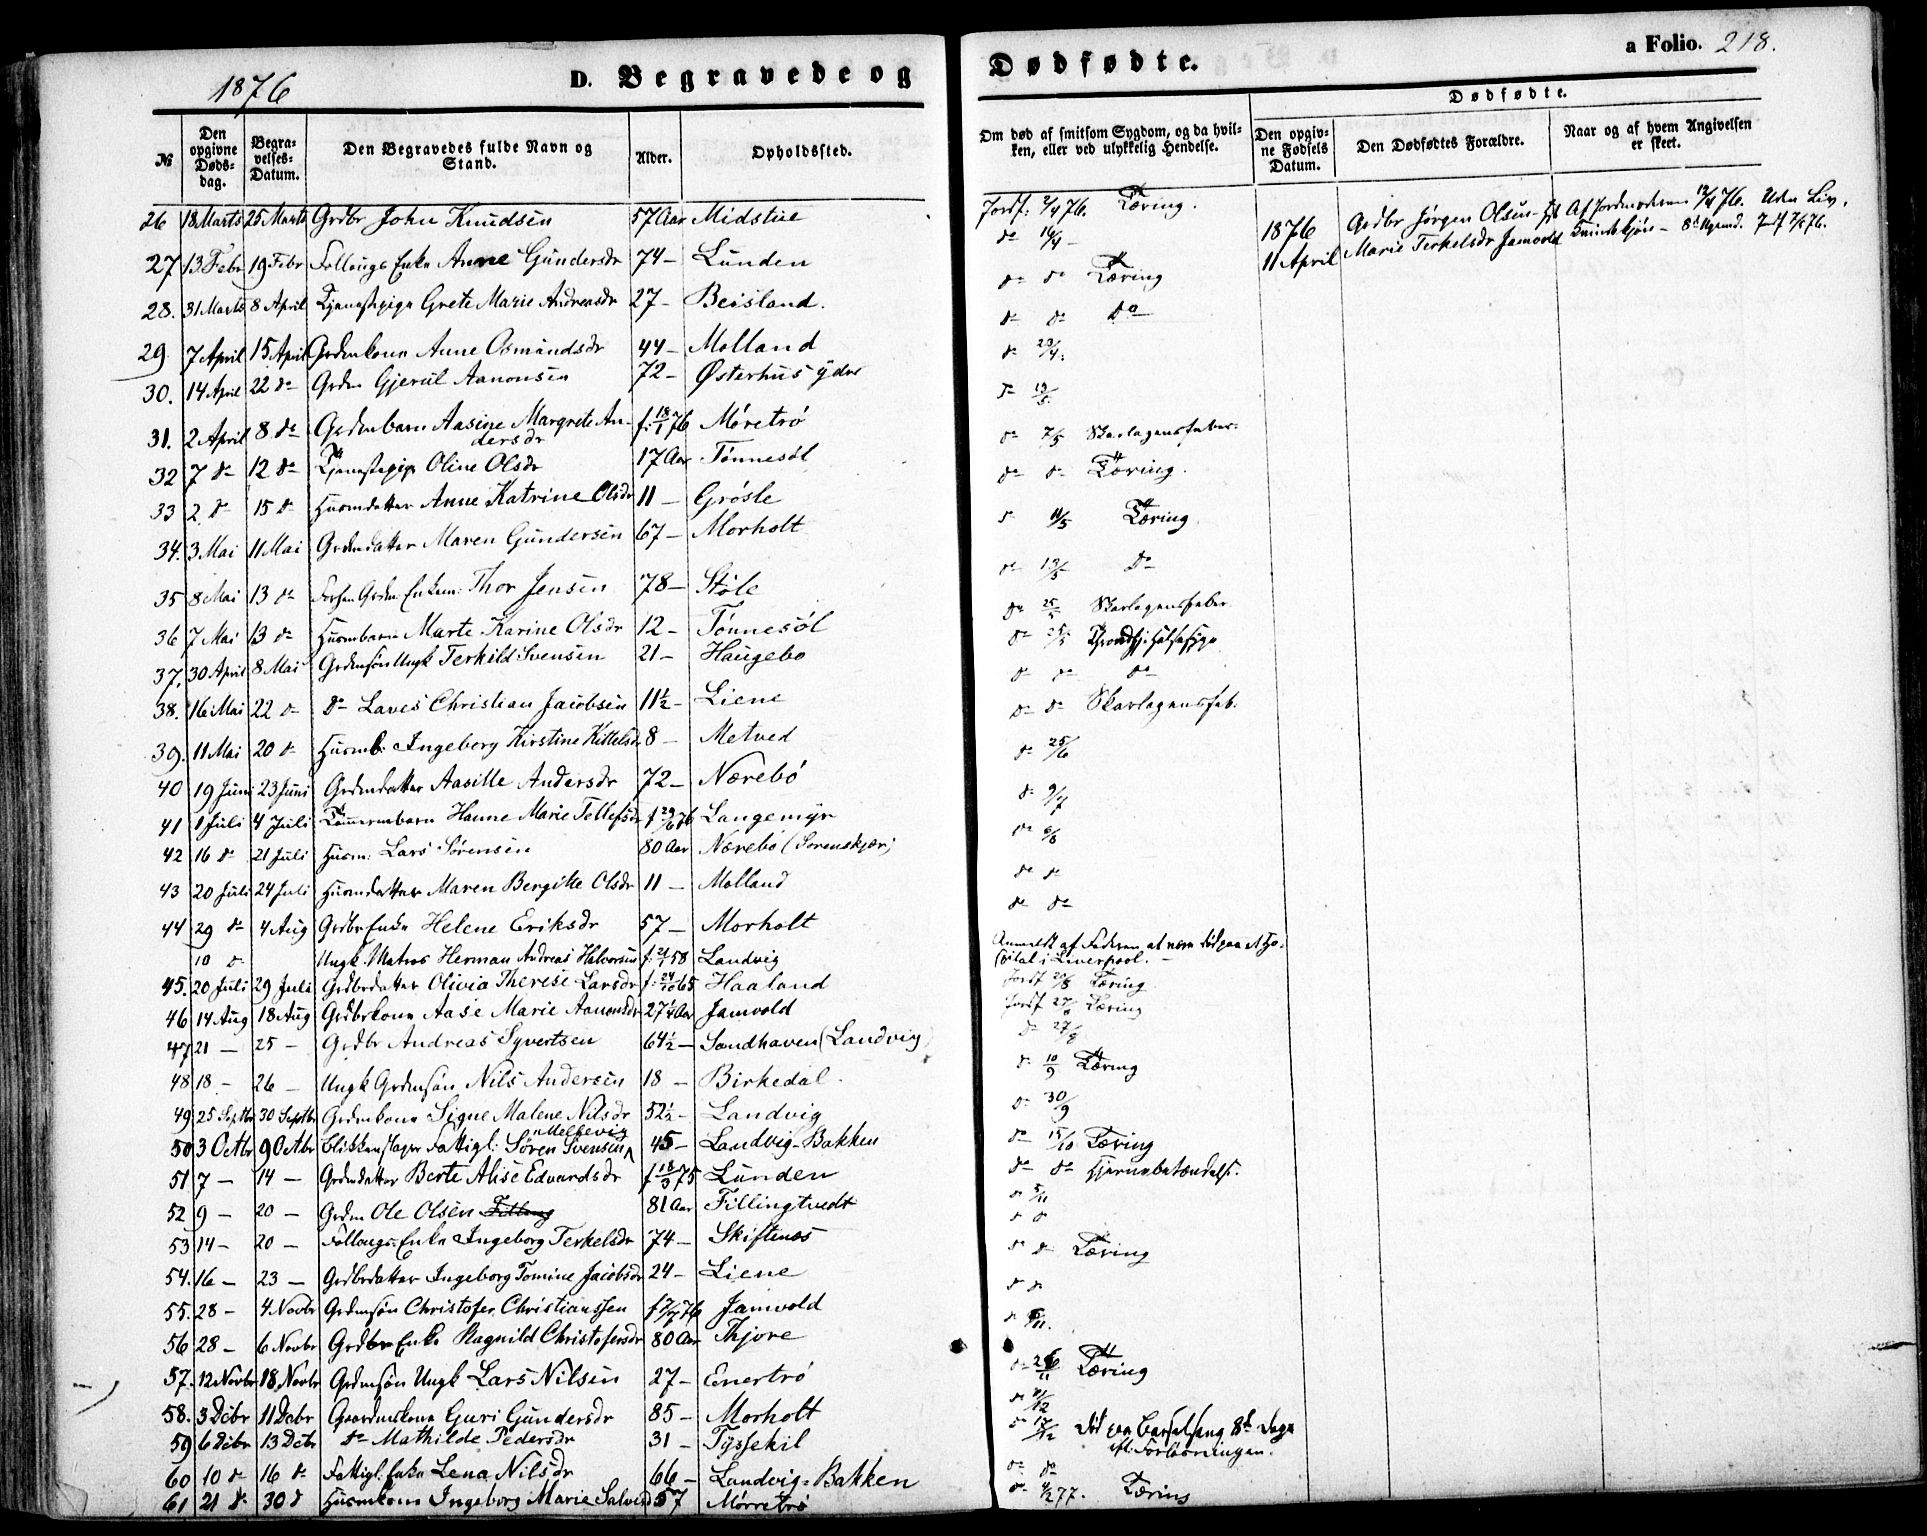 1876
D. Begravede og
Dødfødte.
a Folio. 218.
№ | Den opgivne Dødsdag. | Begravelses-Datum. | Den Begravedes fulde Navn og Stand. | Alder. | Opholdssted.
Om død af smitsom Sygdom, og da hvilken, eller ved ulykkelig Hendelse. | Dødfødte. | Den opgivne Fødsels Datum. | Den Dødfødtes Forældre. | Naar og af hvem Angivelsen er skeet.
26 18 Marts 25 Marts Grdbr John Knudsen 57 Aar Midstue
27 13 Febr 19 Febr Follougs Enke Anne Gundersdr 74 – Lunden
28. 31 Marts 8 April Tjenestepige Grete Marie Andreasdr 27 – Beisland.
29 7 April 15 April Grdmkone Anne Osmundsdr 44 – Molland
30. 14 April 22 do Grdm Gjerul Aanonsen 72 – Østerhus ydre
31. 2 April 8 do Grdmbarn Aasine Margrete An-
dersdr f. 18/1 76 Møretrø
32 7 do 12 do Tjenestepige Oline Olsdr 17 Aar Tønnesøl
33 2 do 15 do Husmdatter Anne Katrine Olsdr 11 – Grøsle
34. 3 Mai 11 Mai Grdmdatter Maren Gundersen 67 – Morholt
35 8 Mai 13 do Grdm Enkem: Thor Jensen 78 – Støle
36 7 Mai 13 do Husmbarn Marte Karine Olsdr 12 – Tønnesøl
37. 30 April 8 Mai Grdmsøn Ungk Terkild Svensen 21 – Haugebo
38. 16 Mai 22 do do Laves Christian Jacobsen 11½ – Liene
39. 11 Mai 20 do Husmb: Ingeborg Kirstine Kittelsdr 8 – Metved
40 19 Juni 23 Juni Grdmdatter Aasille Andersdr 72 – Nærebø
41 1 Juli 4 Juli Tømmermbarn Hanne Marie Tellefsdr f 29/6 76 Langemyr
42 16 do 21 Juli Husm: Lars Sørensen 80 Aar Nærebø (Sorenskjær)
43 20 Juli 24 Juli Husmdatter Maren Bergitte Olsdr 11 – Molland
44 29 do 4 Aug Grdbr Enke Helene Eriksdr 57 – Morholt
10 do Ungk. Matros Herman Andreas Halvorsen f. 21/1 58 Landvig
45. 20 Juli 29 Juli Grdbrdatter Olivia Therese Larsdr f. 24/10 65 Haaland
46 14 Aug 18 Aug Grdbrkone Aase Marie Aanonsdr 27¼ Aar Jamvold
47 21 – 25 – Grdbr Andreas Syvertsen 64½ – Sandhaven (Landvig)
48 18 – 26 – Ungk Grdmsøn Nils Andersen 18 – Birkedal
49 25 Septbr 30 Septbr Grdmkone Signe Malene Nilsdr 52½ – Landvig
50 3 Octbr 9 Octbr Blikkenslager Fattigl: Søren Svensen Melbevig 45 – Landvig-Bakken
51 7 – 14 – Grdmdatter Berte Alise Edvardsdr f 18/3 75 Lunden
52 9 – 20 – Grdm Ole Olsen 81 Aar Fillingtvedt
53 14 – 20 – Follougs: Enke Ingeborg Terkelsdr 74 – Skiftenes
54. 16 – 23 – Grdbrdatter Ingeborg Tomine Jacobsdr 24 – Liene
55. 28 – 4 Novbr Grdmsøn Christofer Christianssen 76 Jamvold
56 28 – 6 Novbr Grdbr Enke Ragnild Christofersdr 80 Aar Thjore
57. 12 Novbr 18 Novbr Grdmsøn Ungk Lars Nilsen 27 – Enertrø
58. 3 Debr 11 Debr Gaardmskone Guri Gundersdr 85 – Morholt
59 6 Debr 13 Debr do Mathilde Pedersdr 31 – Tyssekil
60 10 do 16 do Fattigl. Enke Lena Nilsdr 66 – Landvig-Bakken
61 21 do 30 d Husmkone Ingeborg Marie 57 Mørretrø
Jordf: 2/4 76. Tæring.
do 16/4 –
do do Tæring
do do Do
do 23/4.
d 13/5.
do 7/5 Skarlagensfeber.
do do Tæring.
d 11/5 Tæring
do 13/5 Do
do Skarlagensfeber
do
do do do
do do Skarlagensfeb.
do 25/6
do 9/7
do 6/8
do do
do do
Anmeldt af Faderen at være død paa et Ho-
spital i Liverpool. –
Jordf 20/8 Tæring
Jordf 27/8 Tæring
do 27/8
d. 10/9 Tæring
do 30/9
do 15/10 Tæring
do do Hjernebetændelse.
do 5/11
d d
d do Tæring
d do
do 26/11 Tæring
d 17/12 Død paa Barselseng 8de Dage
eft. Forløsningen.
do do
do 77. Tæring
1876
11 April
Grdbr Jørgen Olsen og
Marie Terkelsdr Jamvold
Af Jordmoderen 12/4 76. Uden Liv.